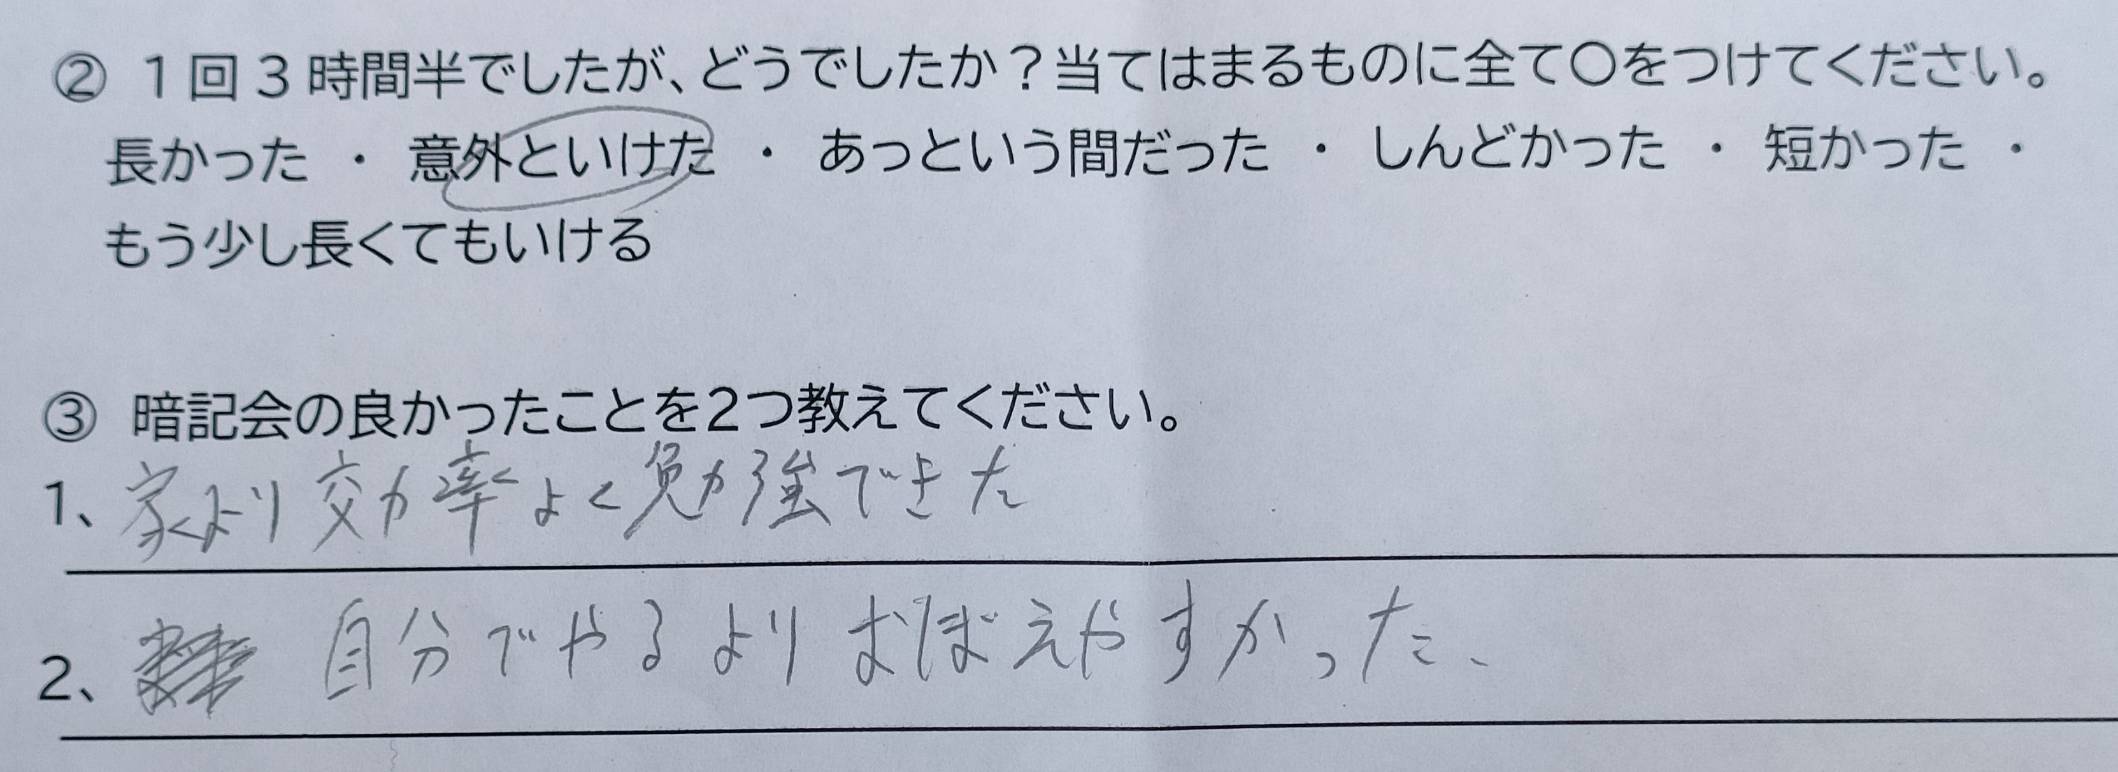 ② 1回3時間半でしたが、どうでしたか？当てはまるものに全て〇をつけてください。
長かった ・ 意外といけた ・ あっという間だった ・ しんどかった ・ 短かった ・
もう少し長くてもいける
③ 暗記会の良かったことを2つ教えてください。
1、家より効率よく勉強できた
2、自分でやるよりおぼえやすかった、